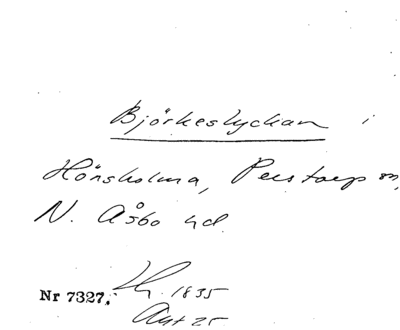 Björkeslyckan i
Hönsholma, Perstorp sn,
N. Åsbo hd.
Nr 7327. 1835
Akt 25